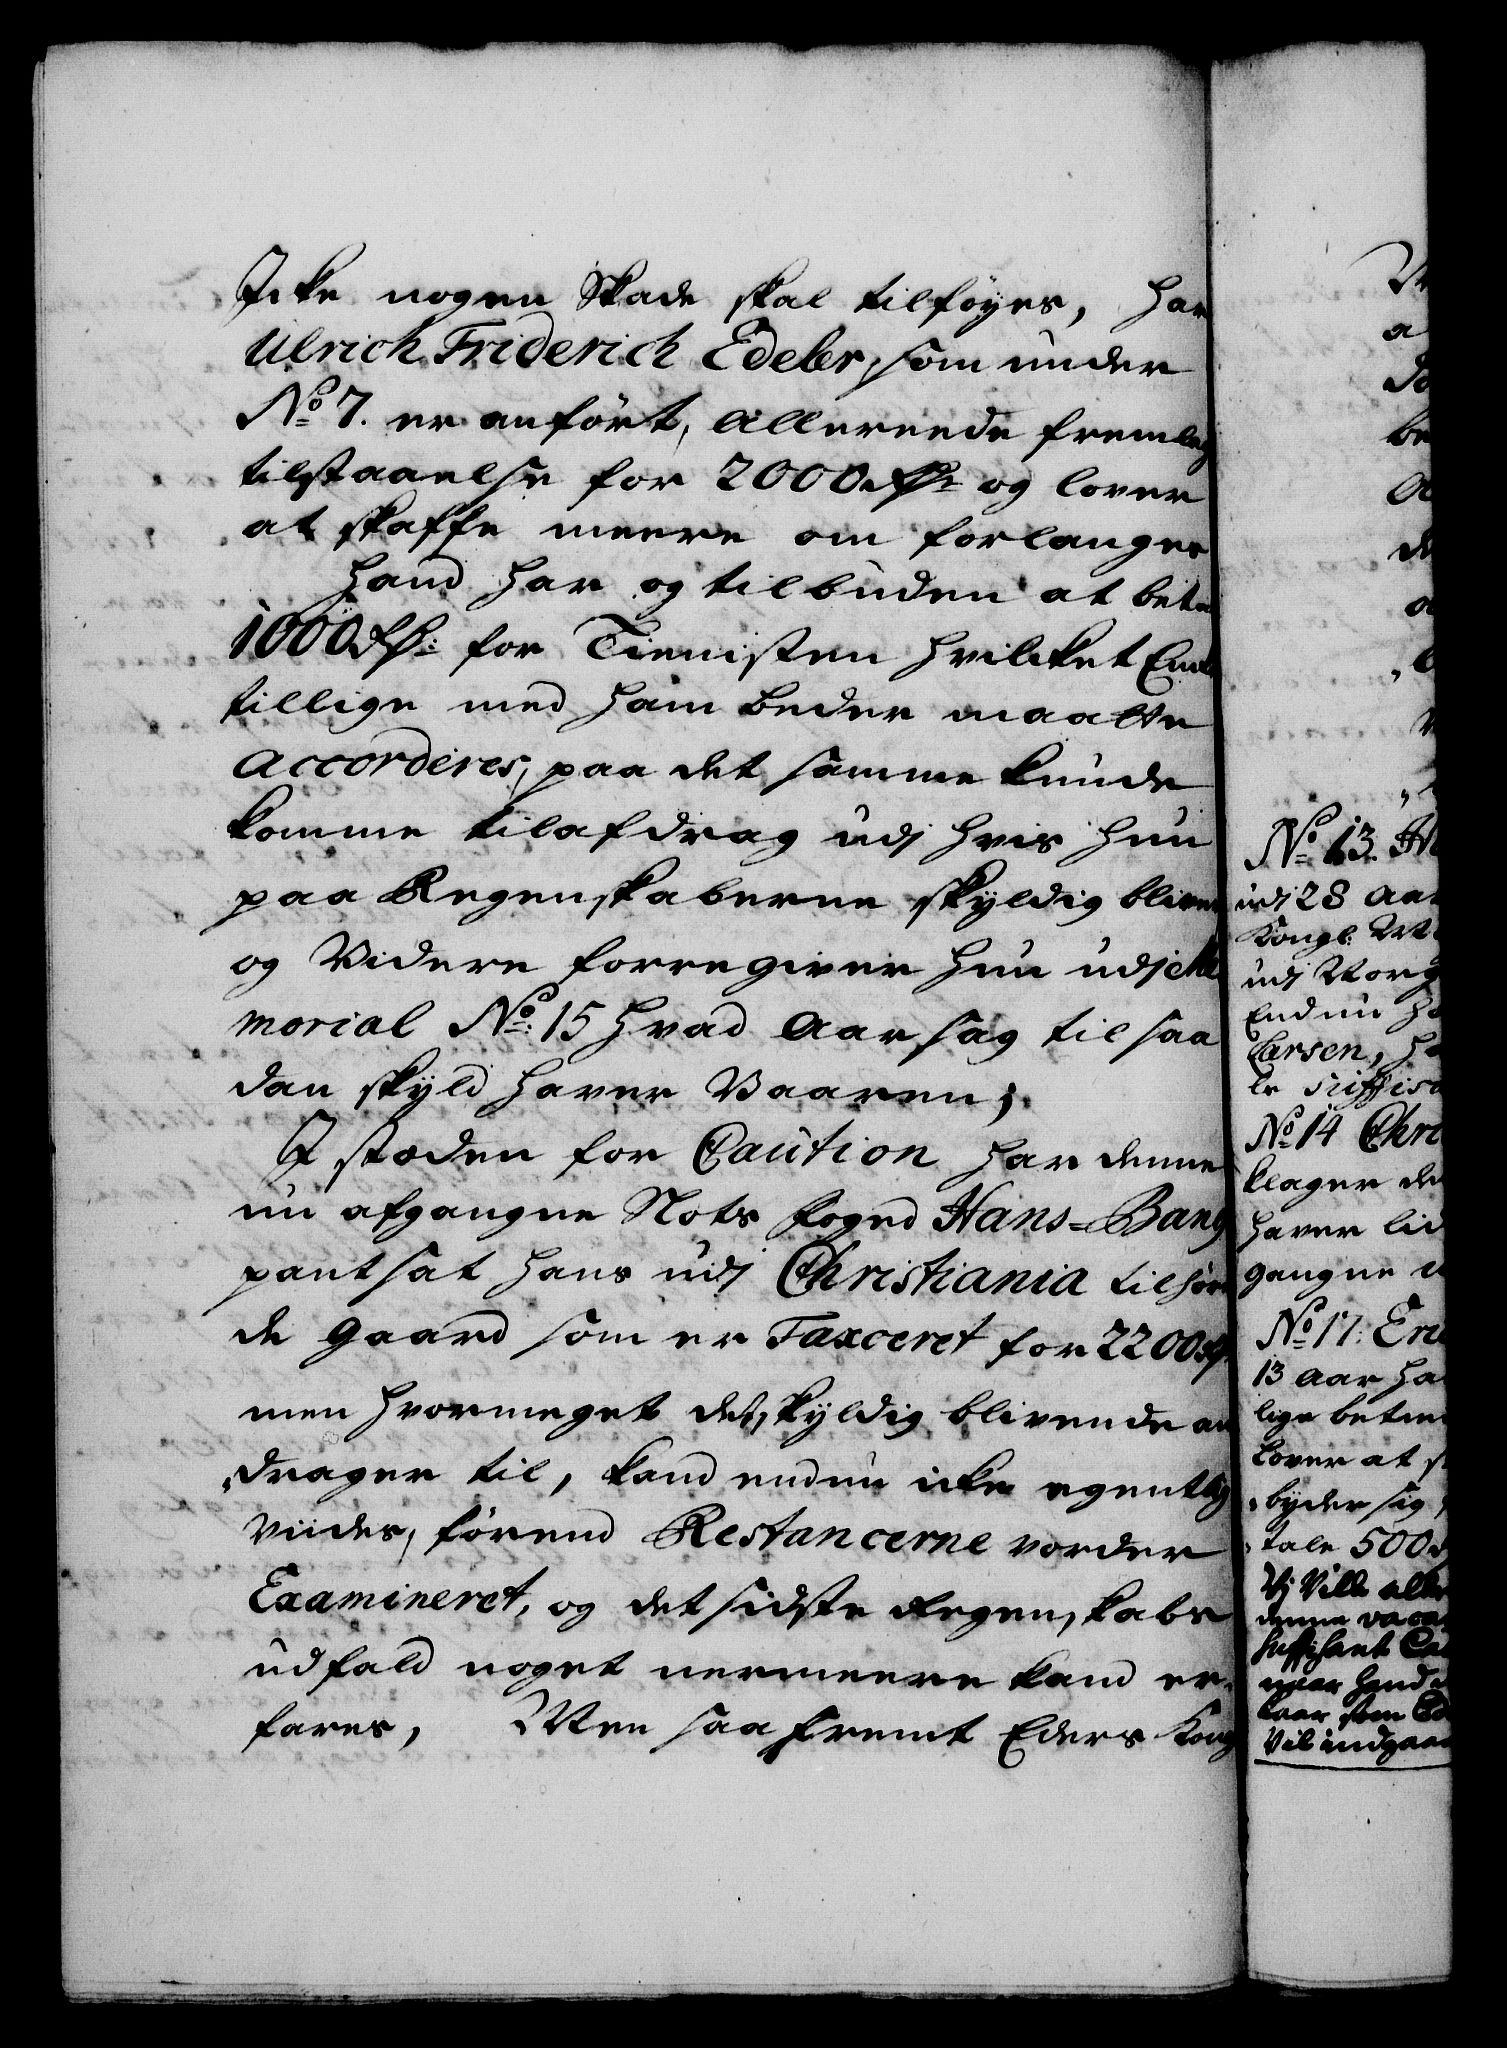 Icke nogen Skade skal tilföyes, har
Ulrich Friderich Edeler, som under
No 7. er anfört, allereede fremlag
tilstaaelse for 2000 Rdr og lover
at skaffe meere om forlanges
Hand har og tilbuden at beta
1000 Rdr: for Tienisten hvilcket
tillige med ham beder maatte
accorderes, paa det samme kunde
komme til afdrag udj hvis hun
paa Regenskaberne skyldig bliver
og Videre forregiver hun udj Me
morial No: 15 hvad Aarsag til saa
dan skyld haver Vaaren;
I stæden for Caution har denne
nu afgangne Slots foged Hans-Bang
pantsat hans udj Christiania tilhøren
de gaard som er Taxceret for 2200 Rd
men hvormeget det skyldig blivende an
drager til, kand endnu icke egentlig
viides, førend Restancerne vorder
Examineret, og det sidste Regenskabs
udfald noget nermeere kand er-
fares, Men saafremt Eders Kong
No 13. H
udj 28 Aar
Kongl:
udj Norg
Endnu ha
Larsen, ha
le suffisa
No 14 Chri
klager de
haver lid
gangne
No 17: Eri
13 Aar ha
lige betien
Lover at s
byder sig
tale 500
Vj Ville aller
denne
suffisant Ca
naar hand
kaar som Ed
Vil indgaa